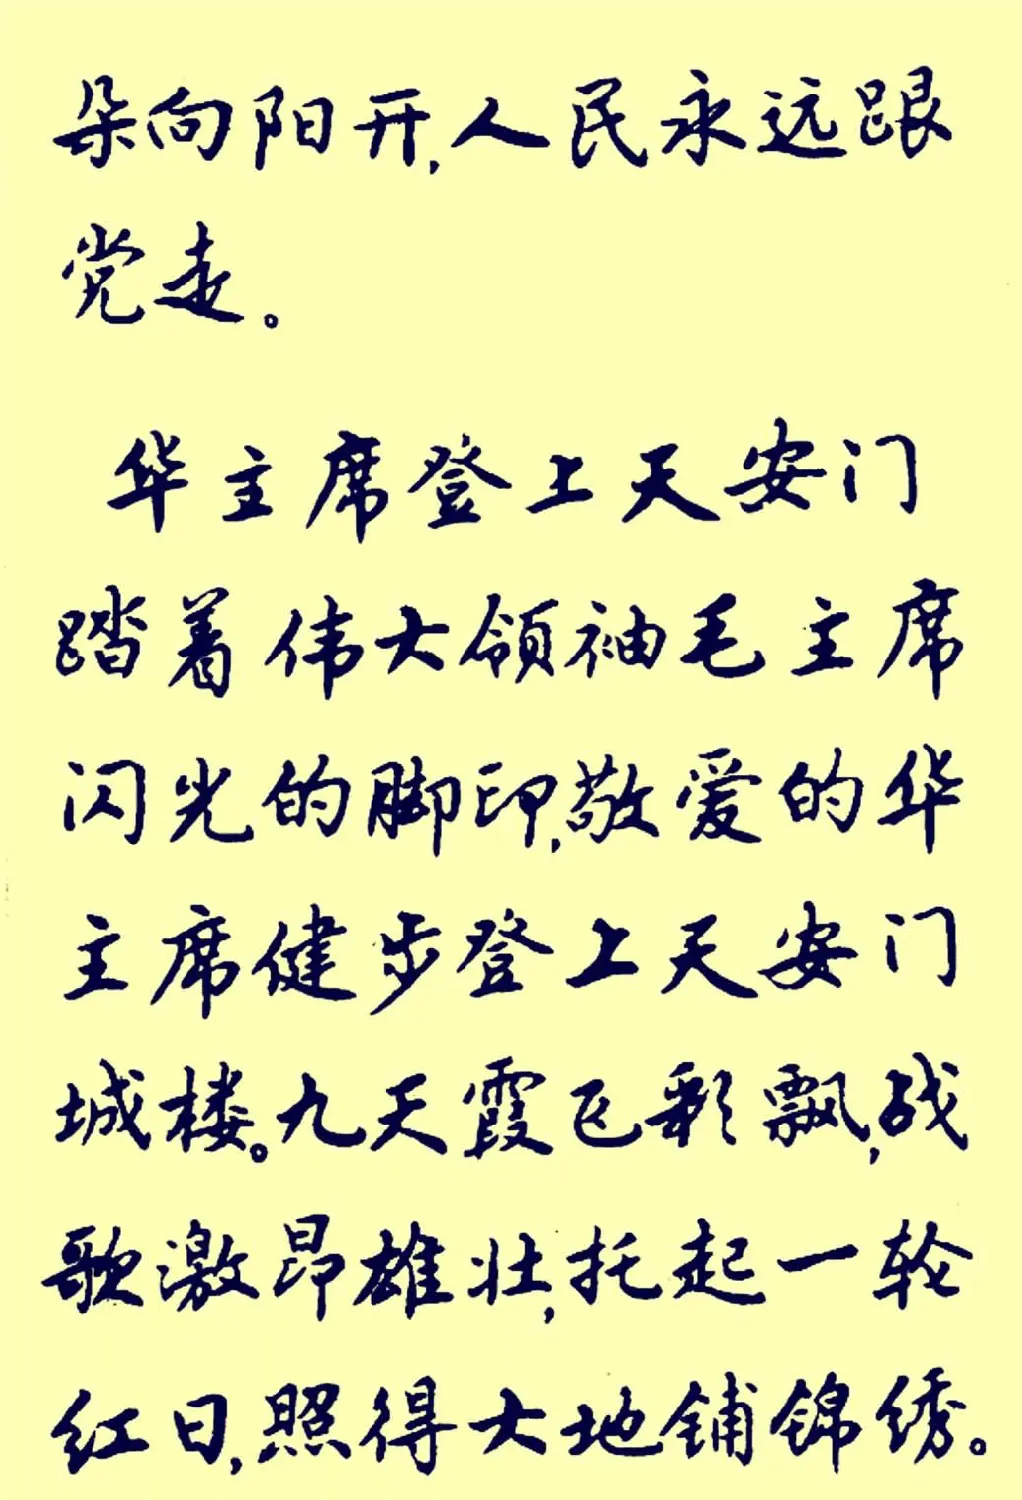 朵向阳开,人民永远跟
党走。
华主席登上天安门
踏着伟大领袖毛主席
闪光的脚印,敬爱的华
主席健步登上天安门
城楼。九天霞飞彩飘,战
歌激昂雄壮,托起一轮
红日,照得大地铺锦绣。